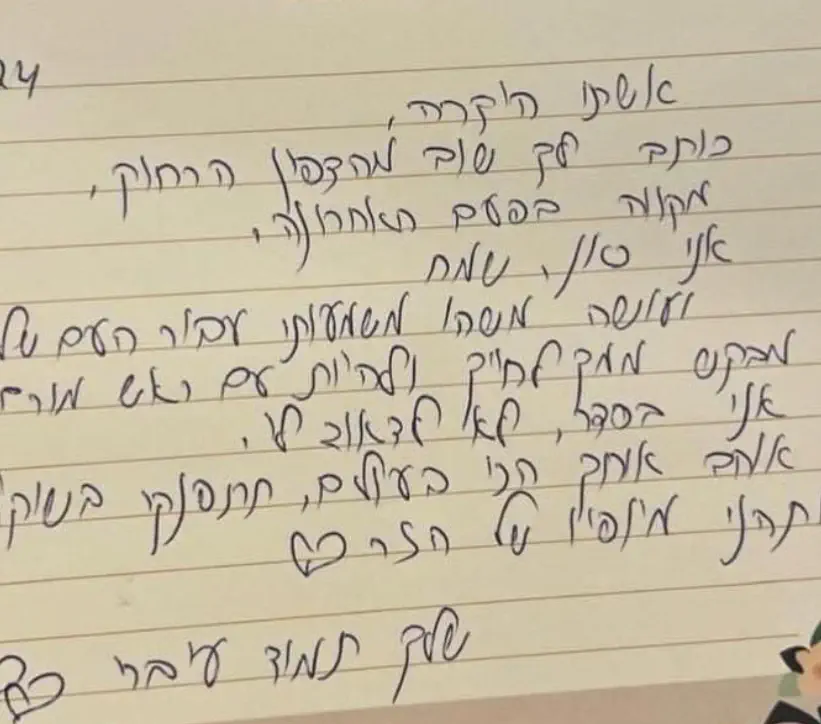 24
אשתי היקרה,
כותב לך שוב מהצפון הרחוק,
מקווה בפעם האחרונה,
אני כאן, שמח
ועושה משהו משמעותי עבור העם של
מבקש ממך לחייך ולהיות עם ראש מורם
אני בסדר, לא לדאוג לי.
אוהב אותך הכי בעולם, תתפנקי בשוקו
תהני מ של הזר
שלך תמיד עיברי